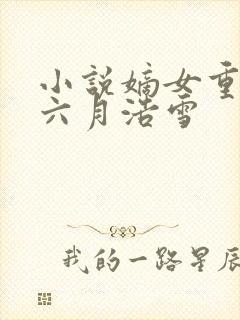 小说嫡女重
六月浩雪
我的一路星辰